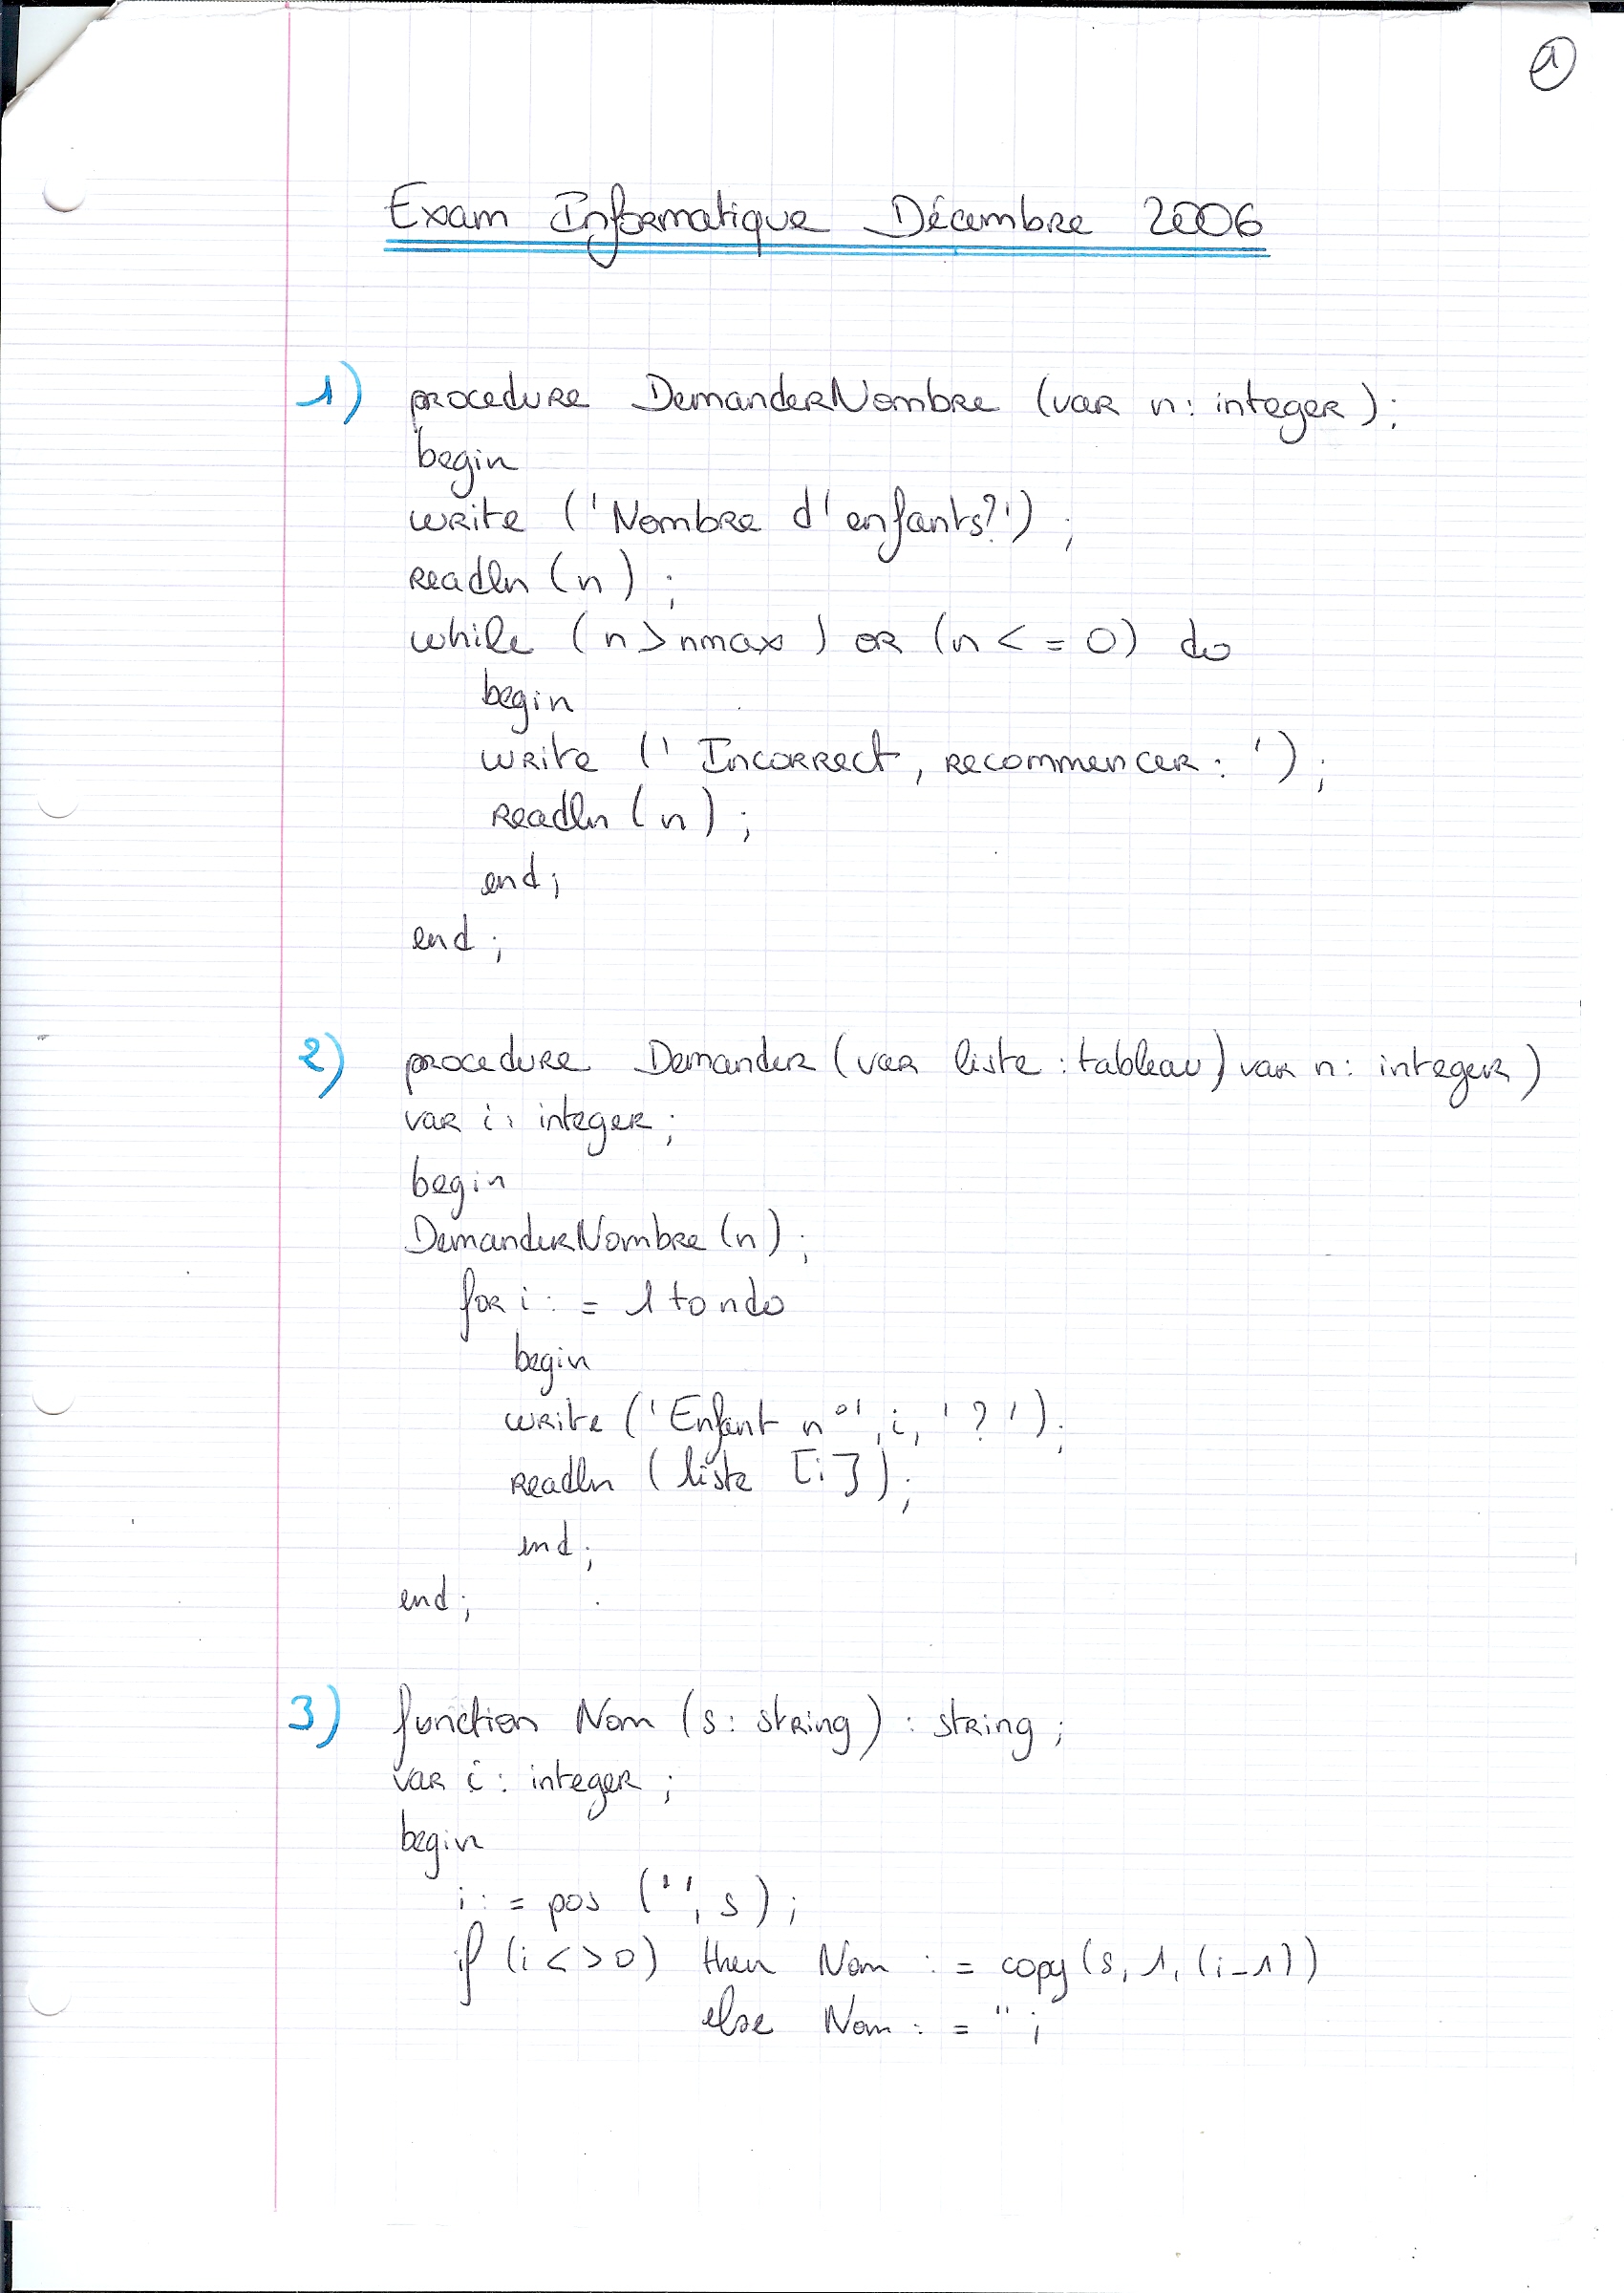 1
Exam Informatique Décembre 2006
1) procedure DemanderNombre (var n: integer);
begin
write ('Nombre d'enfants?');
readln (n);
while (n>nmax) or (n<=0) do
begin
write (' Incorrect, recommencer: ');
readln (n);
end;
end;
2) procedure Demander (var liste : tableau) var n: integer)
var i: integer;
begin
DemanderNombre (n);
for i := 1 to n do
begin
write ('Enfant n°', i, '?');
readln (liste [i]);
end;
end;
3) function Nom (s: string) : string;
var i: integer;
begin
i := pos (' ', s);
if (i<>0) then Nom := copy (s, 1, (i-1))
else Nom := '';